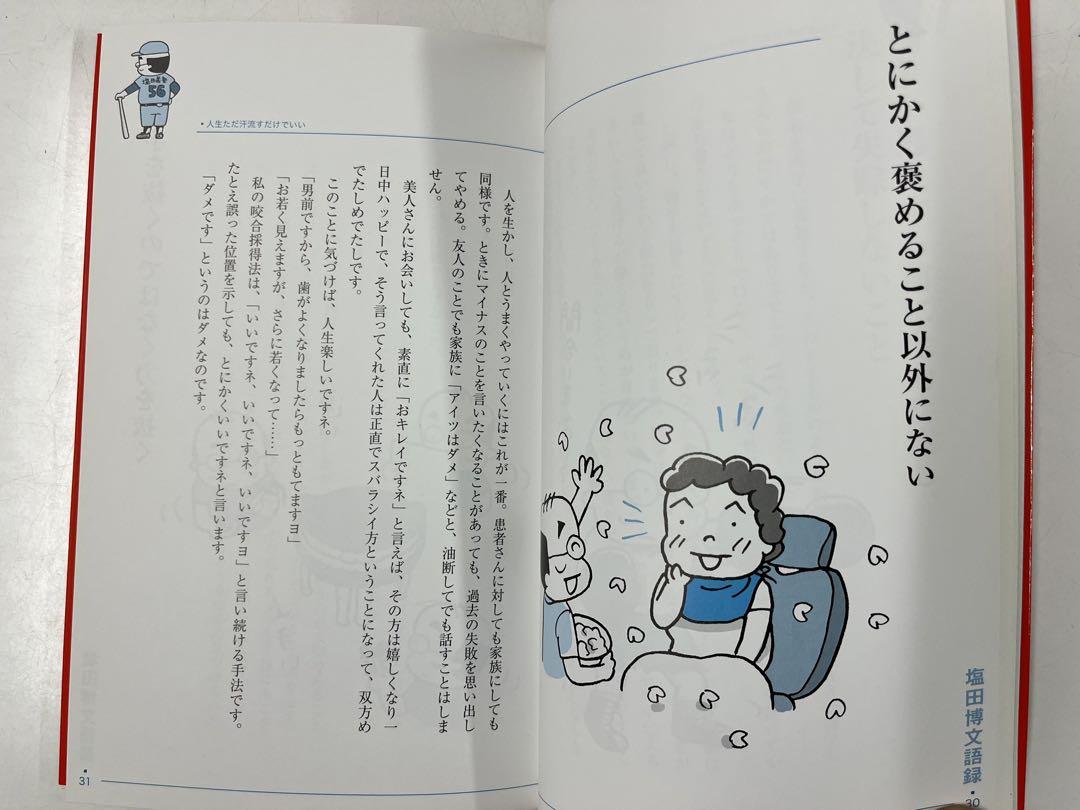 とにかく褒めること以外にない
塩田博文語録
30
塩田義塾
56
人生ただ汗流すだけでいい
人を生かし、人とうまくやっていくにはこれが一番。患者さんに対しても家族にしても
同様です。ときにマイナスのことを言いたくなることがあっても、過去の失敗を思い出し
てやめる。友人のことでも家族に「アイツはダメ」などと、油断してでも話すことはしま
せん。
美人さんにお会いしても、素直に「おキレイですネ」と言えば、その方は嬉しくなり一
日中ハッピーで、そう言ってくれた人は正直でスバラシイ方ということになって、双方め
でたしめでたしです。
このことに気づけば、人生楽しいですネ。
「男前ですから、歯がよくなりましたらもっともてますヨ」
「お若く見えますが、さらに若くなって……」
私の咬合採得法は、「いいですネ、いいですネ、いいですヨ」と言い続ける手法です。
たとえ誤った位置を示しても、とにかくいいですネと言います。
「ダメです」というのはダメなのです。
31